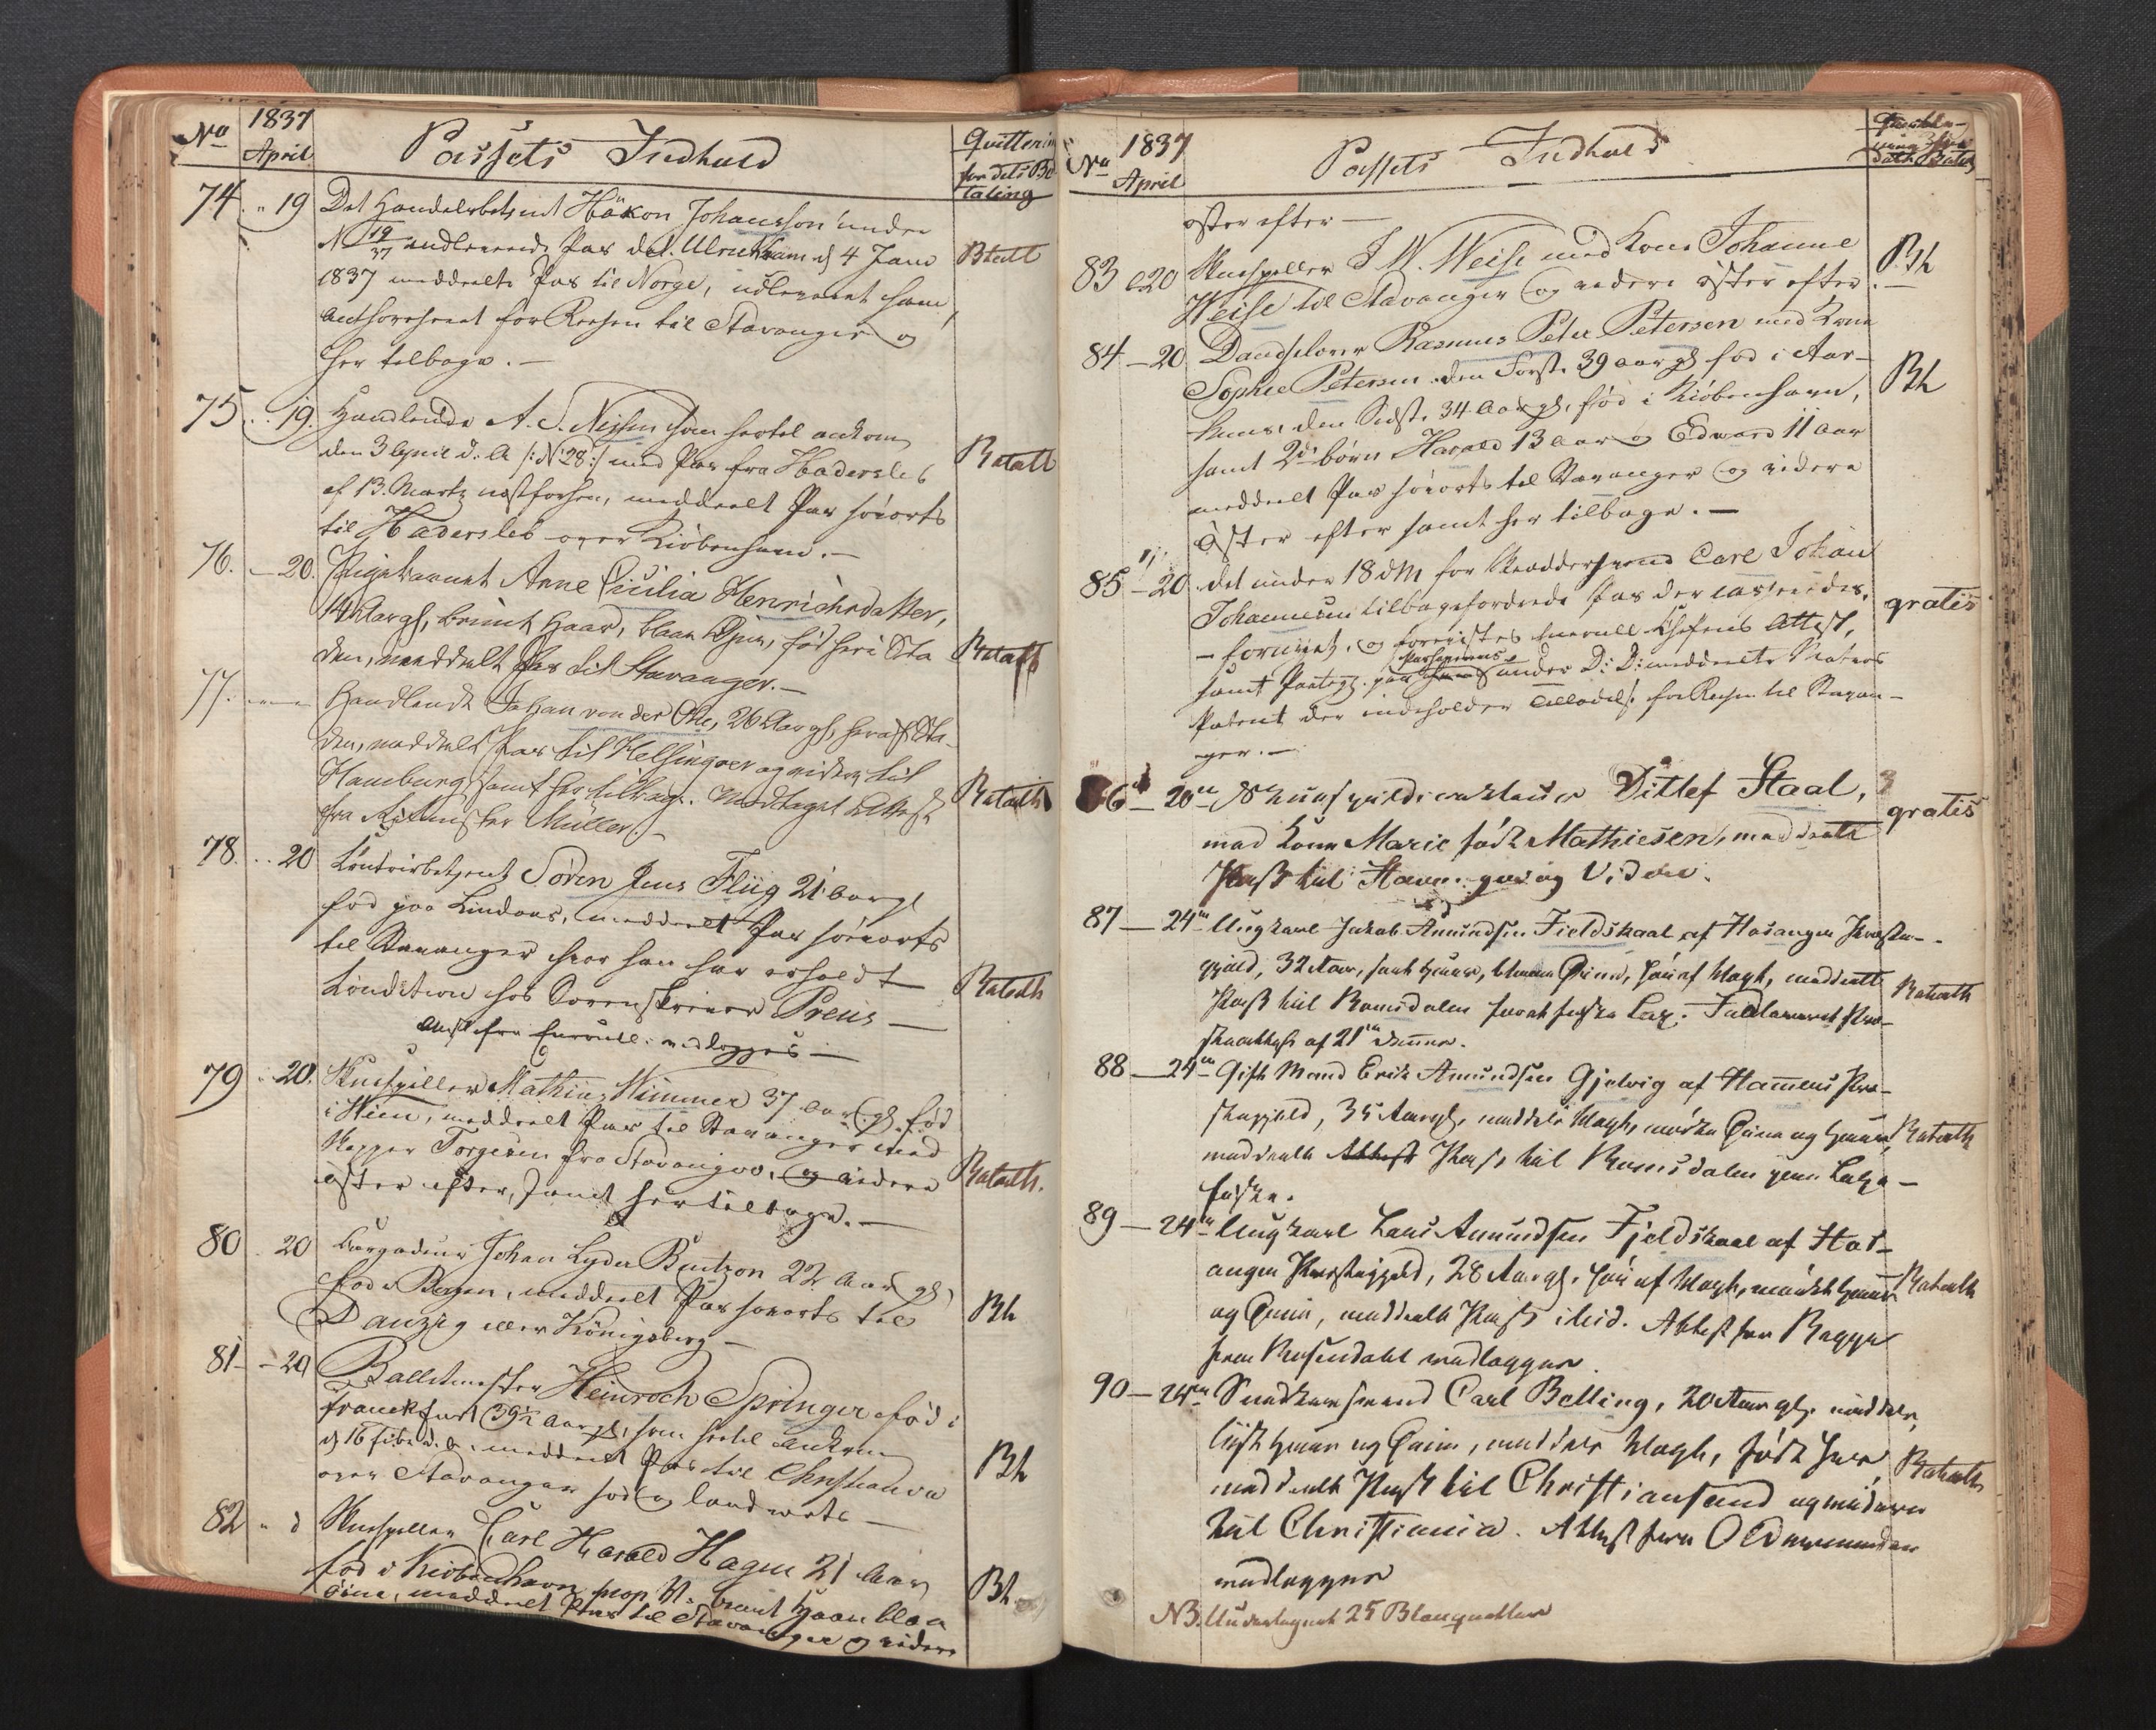 No 1837 April Passets Indhold Quittering for dets Betaling
74 " 19 Det Handelsbetjent Håkon Johansson under
No 19/37 indleverede Pas dat. Ulriceham d 4 Janu
1837 meddeelte Pas til Norge, udleveret ham,
authoriseret for Reisen til Stavanger og
her tilbage. — Btalt
75 .. 19. Handlende A. S. Nissen som hertil ankom
den 3 April d. A. /: No 28 :/ med Pas fra Hadersleb
af 13. Martz næstforhen, meddeelt Pas søeverts
til Hadersleb over Kiöbenhavn. — Betalt
76. — 20. Pigebarnet Anne Cicilia Henrichsdatter,
14 Aargl, bruunt Haar, blaae Øjne, fød her i Sta
den, meddeelt Pas til Stavanger. — Betalt
77. — Handlende Johan von der Ohe, 26 Aargl, her af Sta-
den, meddeelt Pas til Helsingoer og videre til
Hamburg samt her tilbage. Modtaget Attest
fra Ritmester Müller. — Betalth
78. .. 20 Contoirbetjent Sören Jens Flüg 21 Aargl
fød paa Lindaas, meddeelt Pas söeverts
til Stavanger hvor han har erholdt
Condition hos Sorenskriver Preus —
Attest fra Enroull: vedlegges — Betalth
79 .. 20. Skuespiller Mathias Wimmer 37 Aar gl. fød
i Wien, meddeelt Pas til Stavanger med
Skipper Torgersen fra Stavanger, og videre
øster efter, samt her tilbage. — Betalth.
80 . 20 Borgersøn Johan Lyder Buntzon 22 Aar gl,
fød i Bergen, meddeelt Pas søverts til
Danzig eller Königsberg — Bth
81 — 20 Balletmester Heinroch Springer fød i
Franckfurt 39½ Aar gl, som hertil ankom
d 16 Febr d. A. meddeelt Pas til Christiania
over Stavanger sød og landverts — Bth
82 " d Skuespiller Carl Harald Hagen 21 Aar
fød i Kiöbenhavn, bruunt Haar blaa
øine, meddeelt Pas til Stavanger og videre Bth
No 1837 April Passets Indhold
øster efter —
83 20 Skuespiller J. W. Weise med Kone Johanne
Weise til Stavanger og videre øster efter. — Bth
84 — 20 Dandselærer Rasmus Peter Petersen med Kone
Sophie Petersen den Først. 39 aar gl fød i Aar-
huus, den Sidst. 34 Aar gl, fød i Kiöbenhavn,
samt 2de børn Harald 13 aar og Edward 11 Aar
meddeelt Pas söeverts til Stavanger og videre
øster efter samt her tilbage. — Bth
85 — 20 det under 18 d M for Skræddersvend Carl Johan
Johannesen tilbagefordrede Pas der casseredes,
— fornyet, og forevistes Enroull Chefens Attest,
samt Paategn. paa under D: D: meddeelte Matros
Patent der indeholder Tilladelse for Reisen til Stavan-
ger. — gratis
86 — 20de Skuespildirecteur Ditlef Staal,
med Kone Marie född Mathiesen, meddeelt
Pass til Stavanger og Videre. gratis
87 — 24de Ungkarl Jacob Amundsen Fieldskaal af Hosanger Præste-
gjeld, 32 Aar, sort Haar, blaae Øine, høi af Vægt, meddeelt
Pass til Romsdalen for at fiske Lax. Indleveret Præ-
steattest af 21de dennes. Betalth
88 — 24de Gift Mand Erik Amundsen Gjelvig af Hammers Præ-
stegjeld, 35 Aargl, middels Vægt, mørke Øine og Haar,
meddeelt Pass til Romsdalen paa Laxe-
fiske. Betalth
89 — 24de Ungkarl Lars Amundsen Fjeldskaal af Hos-
anger Præstegjeld, 28 Aargl. høi af Vægt, mørkt Haar
og Øine, meddeelt Pass ibid. Attest fra
fra Rosendahl vedlægger. Betalth
90 — 24de Snedkersvend Carl Belling, 20 Aar gl. middels,
lyst Haar og Øine, middels Vægt, född her,
meddeelt Pass til Christiansand og videre
til Christiania. Attest fra Oldermanden
vedlægges Betalth
NB. Undertegnet 25 Blanquetter